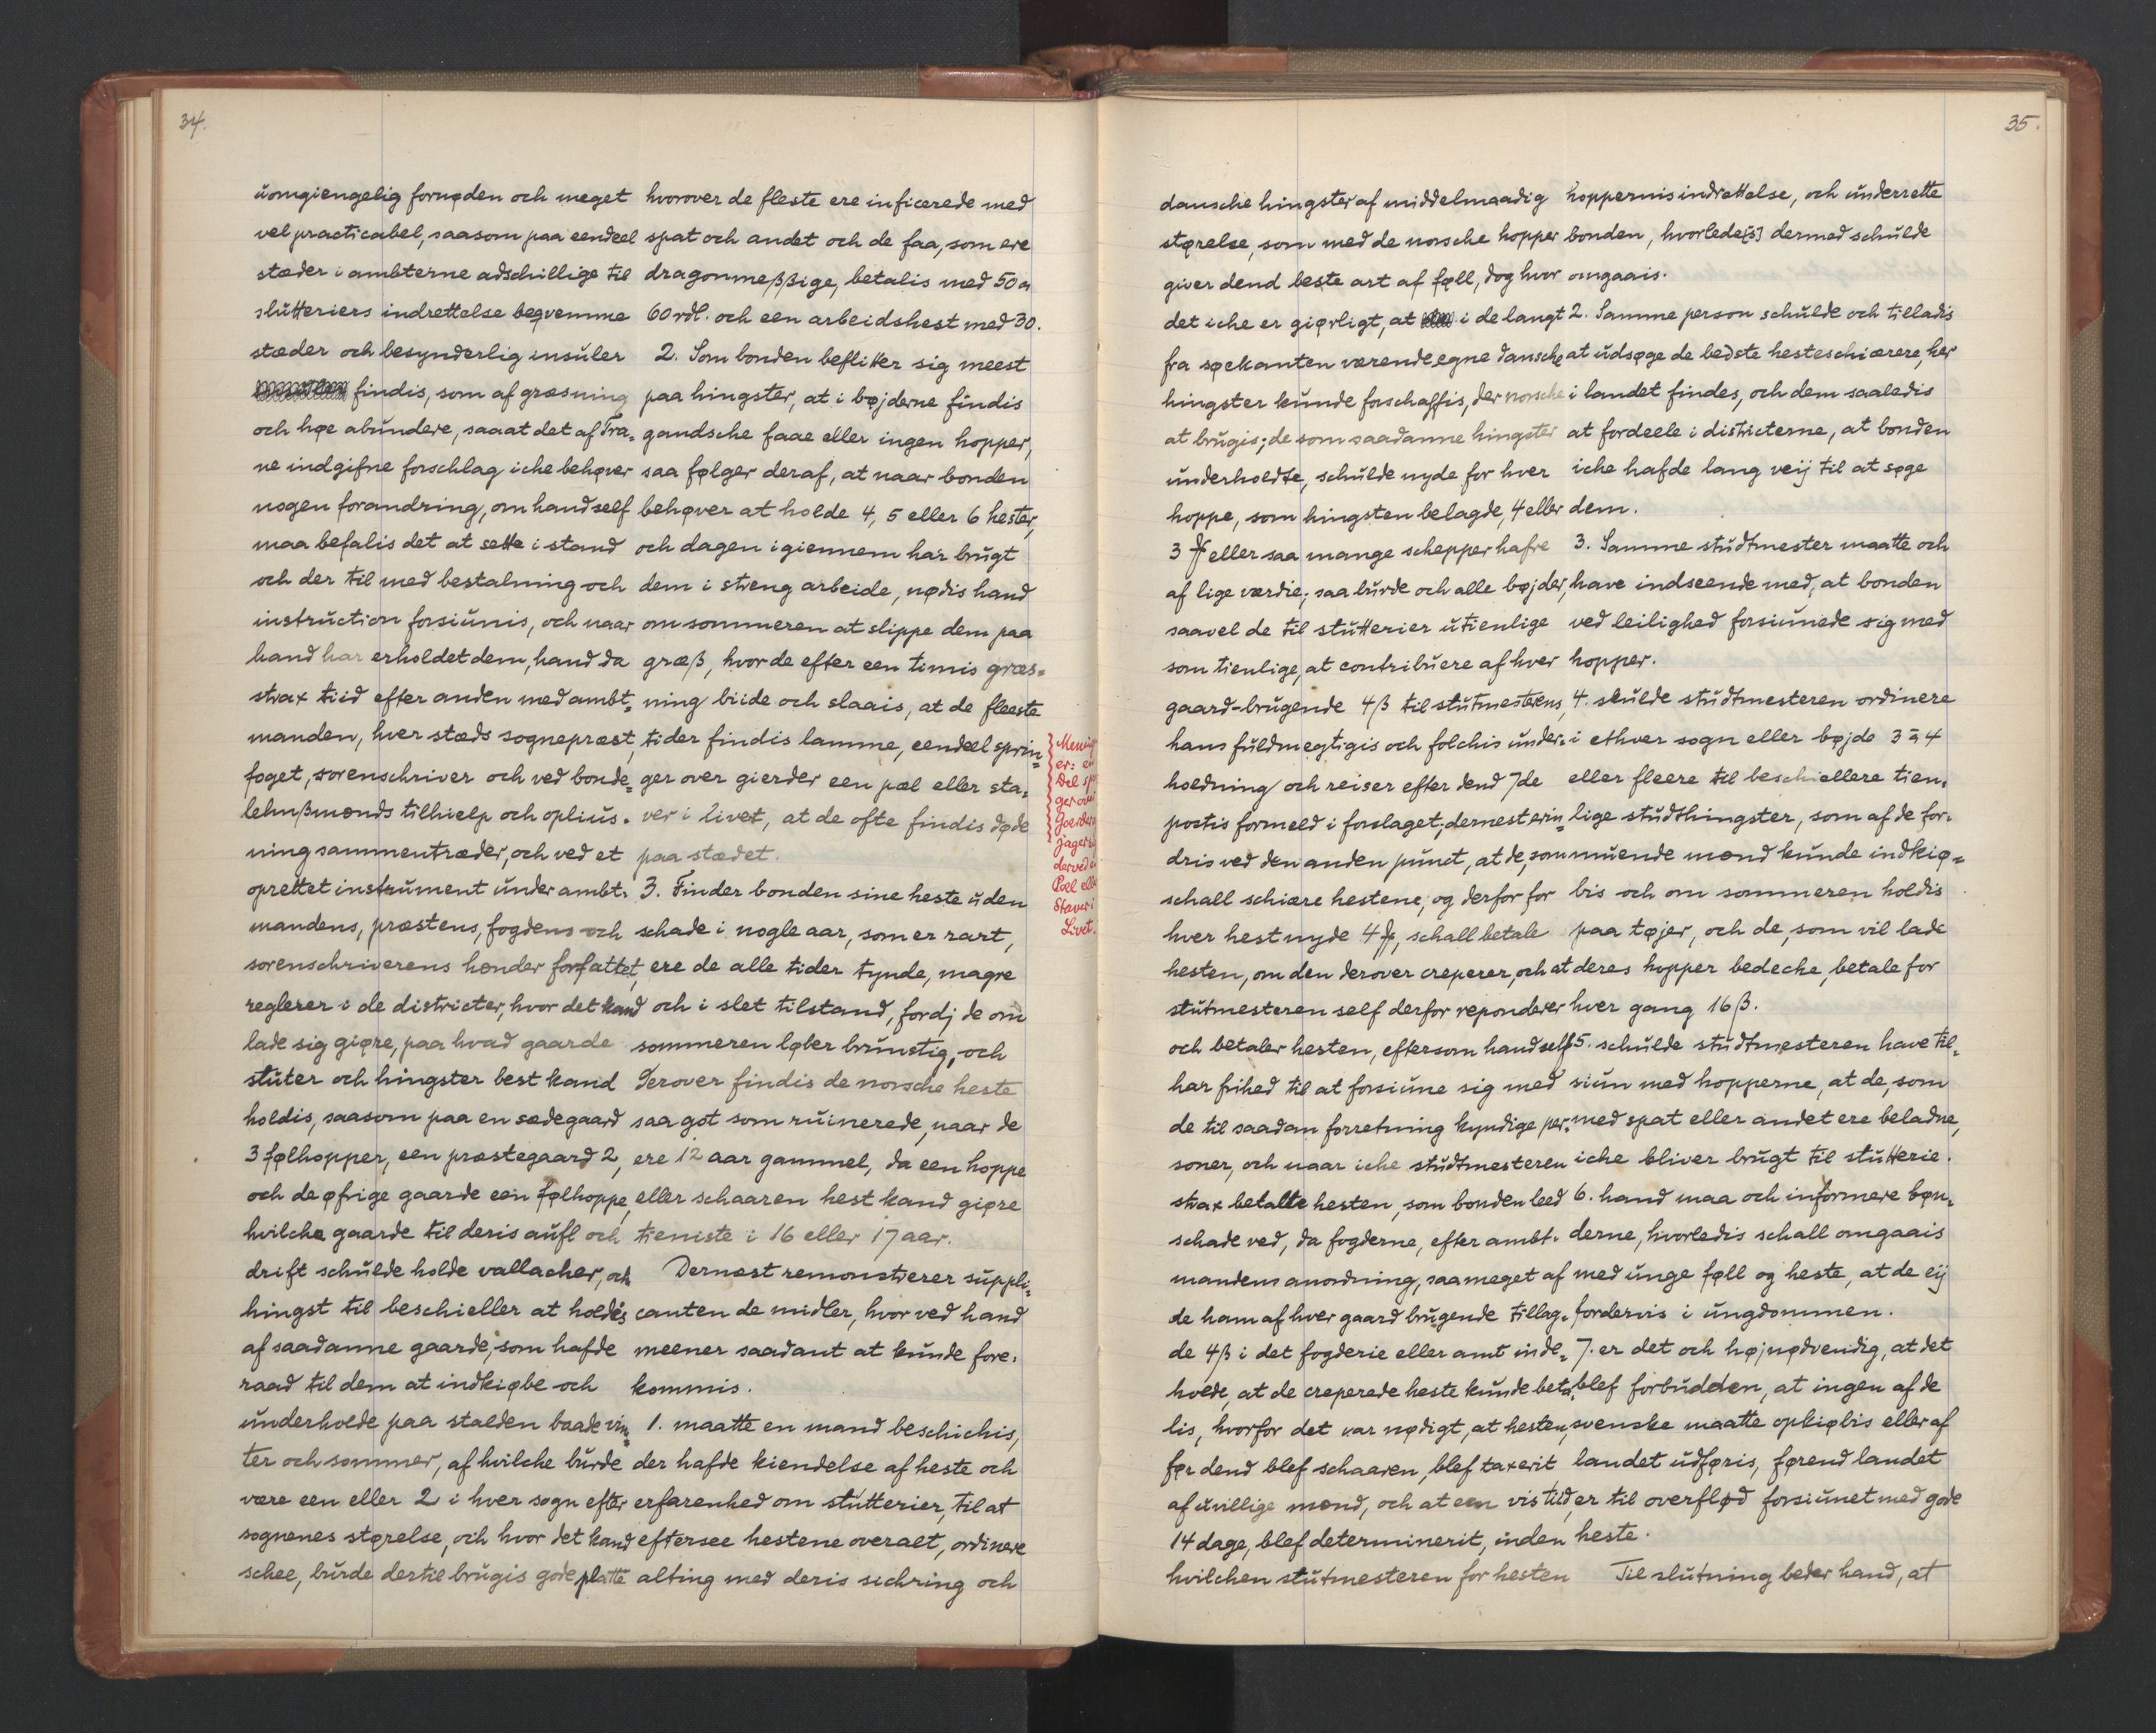 34.
uomgiengelig fornøden och meget
vel practicabel, saasom paa eendeel
stæder i ambterne adschillige til
stutteriers indrettelse beqvemme
stæder och besynderlig insuler
findis, som af græsning
och høe abundere, saaat det af Tra=
ne indgifne forschlag iche behøver
nogen forandring, om hand self
maa befalis det at sette i stand
och der til med bestalning och
instruction forsiunis, och naar
hand har erholdet dem, hand da
strax tiid efter anden med ambt=
manden, hver stæds sognepræst,
foget, sorenschriver och ved bonde=
lehnßmænds tilhielp och oplius=
ning sammentræder, och ved et
oprettet instrument under ambt=
mandens, præstens, fogdens och
sorenschriverens hænder forfattet,
reglerer i de districter, hvor det kand
lade sig giøre, paa hvad gaarde
stuter och hingster best kand
holdis, saasom paa en sædegaard
3 følhopper, een præstegaard 2,
och de øfrige gaarde een følhoppe,
hvilche gaarde til deris aufl och
drift schulde holde vallacher, och
hingst til beschieller at holdes
af saadanne gaarde, som hafde
raad til dem at indkiøbe och
underholde paa stalden baade vin=
ter och sommer, af hvilche burde
være een eller 2 i hver sogn efter
sognenes størelse, och hvor det kand
schee, burde dertil brugis gode platte
hvorover de fleste ere inficerede med
spat och andet och de faa, som ere
dragonmeßßige, betalis med 50 a
60 rdl. och een arbeidshest med 30.
2. Som bonden beflitter sig meest
paa hingster, at i bøjderne findis
gandsche faae eller ingen hopper,
saa følger deraf, at naar bonden
behøver at holde 4, 5 eller 6 hester,
och dagen igiennem har brugt
dem i streng arbeide, nødis hand
om sommeren at slippe dem paa
græß, hvor de efter een timis græs=
ning biide och slaais, at de fleeste
tider findis lamme, eendeel sprin=
ger over gierder een pæl eller sta=
ver i livet, at de ofte findis døde
paa stædet.
3. Finder bonden sine heste uden
schade i nogle aar, som er rart,
ere de alle tider tynde, magre
och i slet tilstand, fordj de om
sommeren løber brunstig, och
Derover findis de norsche heste
saa got som ruinerede, naar de
ere 12 aar gammel, da een hoppe
eller schaaren hest kand giøre
tieniste i 16 eller 17 aar.
Dernæst remonstrerer suppli=
canten de midler, hvor ved hand
meener saadant at kunde fore=
kommis.
1. maatte en mand beschichis,
der hafde kiendelse af heste och
erfarenhed om stutterier, til at
eftersee hestene overalt, ordinere
alting med deris sichring och
er:
Del
ger
Gierder
jager
derved
Pæl
Staver i
Livet.
35.
dansche hingster af middelmaadig
størelse, som med de norsche hopper
giver dend beste art af føll, dog hvor
det iche er giørligt, at i de langt
fra søekanten værende egne dansche
hingster kunde forschaffis, der norsche
at brugis; de som saadanne hingster
underholdte, schulde nyde for hver
hoppe, som hingsten belagde, 4 eller
3 ₰ eller saa mange schepper hafre
af lige værdie; saa burde och alle bøjder,
saavel de til stutterier utienlige
som tienlige, at contribuere af hver
gaard-brugende 4 β til stutmesterens,
hans fuldmegtigis och folchis under=
holdning och reiser efter dend 7de
postis formeld i forslaget; dernest erin=
dris ved den anden punct, at de, som
schall schiære hestene, og derfor for
hver hest nyde 4 ₰, schall betale
hesten, om den derover creperer, och at
stutmesteren self derfor reponderer
och betaler hesten, eftersom hand self
har frihed til at forsiune sig med
de til saadan forretning kyndige per=
soner, och naar iche studtmesteren
strax betalte hesten, som bonden leed
schade ved, da fogderne, efter ambt=
mandens anordning, saa meget af
de ham af hver gaard brugende tillag=
de 4 β i det fogderie eller amt inde=
holde, at de creperede heste kunde beta=
lis, hvorfor det var nødigt, at hesten,
før dend blef schaaren, blef taxerit
af uvillige mænd, och at een vis tiid,
14 dage, blef determinerit, inden
hvilchen stutmesteren for hesten
hoppernis indrettelse, och underrette
bonden, hvorlede[s] dermed schulde
omgaais.
2. Samme person schulde och tilladis
at udsøge de bedste hesteschiærere, her
i landet findes, och dem saaledis
at fordeele i districterne, at bonden
iche hafde lang veij til at søge
dem.
3. Samme studtmester maatte och
have indseende med, at bonden
ved leilighed forsiunede sig med
hopper.
4. skulde studtmesteren ordinere
i ethver sogn eller bøjde 3 à 4
eller fleere til beschiellere tien=
lige studthingster, som af de for=
muende mænd kunde indkiø=
bis och om sommeren holdis
paa tøjer, och de, som vil lade
deres hopper bedeche, betale for
hver gang 16 β.
5. schulde studtmesteren have til=
siun med hopperne, at de, som
med spat eller andet ere beladne,
iche bliver brugt til stutterie.
6. hand maa och informere bøn=
derne, hvorledis schall omgaais
med unge føll og heste, at de eij
fordervis i ungdommen.
7. er det och højnødvendig, at det
blef forbudden, at ingen af de
svenske maatte opkiøbis eller af
landet udføris, førend landet
er til overflød forsiunet med gode
heste.
Til slutning beder hand, at